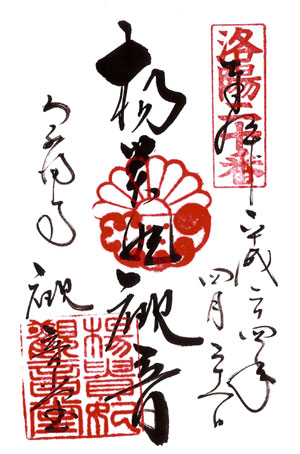 洛陽二十番
奉拝
平成二四年
四月
楊貴妃観音
泉涌寺
観音堂
楊貴妃
観音堂